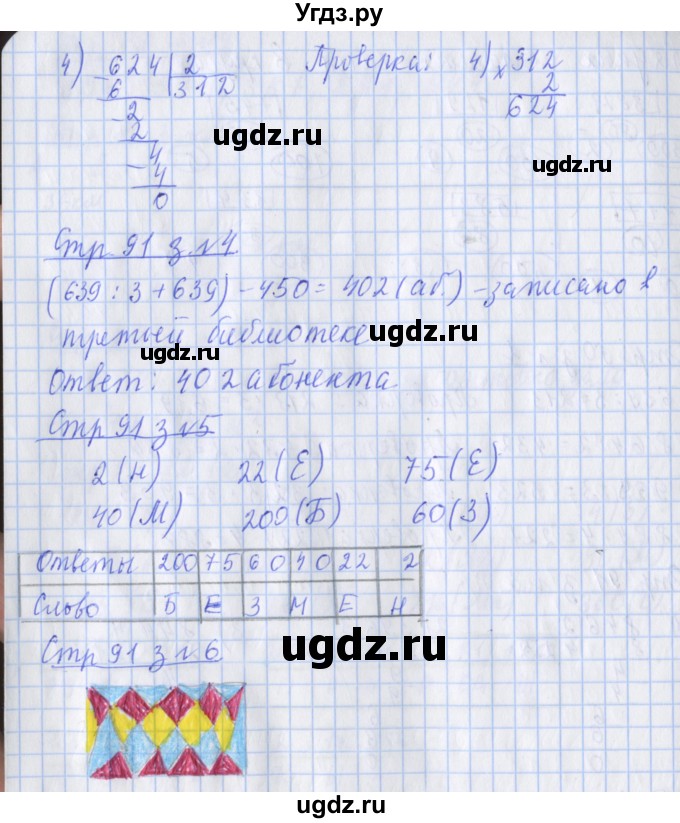 Угдз.ру
4) 624 | 2 Проверка: 4) × 312
- 6 312 2
- 2 624
2
4
- 4
0
ugdz.ru
ugdz.ru
Стр 91 з №4
(639 : 3 + 639) - 450 = 402 (аб.) - записано в
третьей библиотеке
ugdz.ru
ugdz.ru
Ответ: 402 абонента
Стр 91 з №5
2 (Н) 22 (Е) 75 (Е)
40 (М) 200 (Б) 60 (З)
Ответы 200 75 60 40 22 2
Слово Б Е З М Е Н
Стр 91 з №6
ugdz.ru
ugdz.ru
ugdz.ru